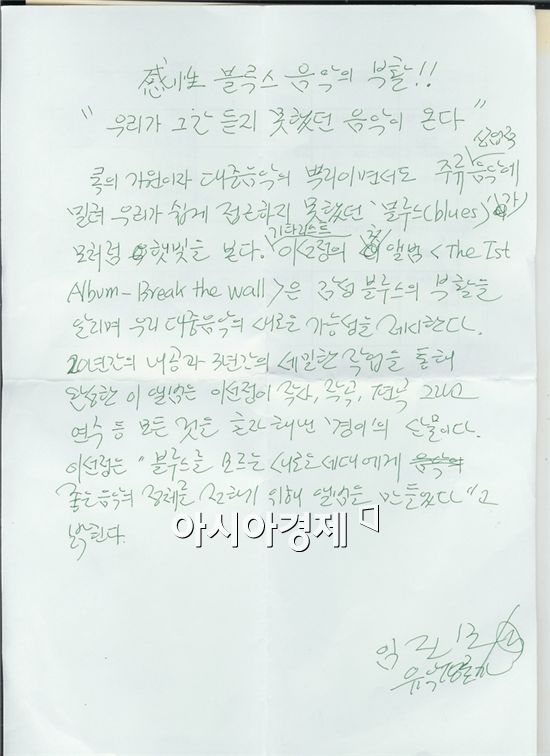 感性 블루스 음악의 부활!!
"우리가 그간 듣지 못했던 음악이 온다"
상업적
록의 기원이자 대중음악의 뿌리이면서도 주류음악에
밀려 우리가 쉽게 접근하지 못했던 '블루스(blues)'가
기타리스트
모처럼 햇빛을 본다. 이선점의 첫 앨범 <The 1st
Album-Break the wall>은 감성 블루스의 부활을
알리며 우리 대중음악의 새로운 가능성을 제시한다.
20년간의 내공과 3년간의 세밀한 작업을 통해
완성한 이 앨범은 이선점이 작사, 작곡, 편곡 그리고
연주 등 모든 것을 혼자 해낸 '경이'의 산물이다.
이선점은 "블루스를 모르는 새로운 세대에게 음악의
좋은음악의 정체를 전하기 위해 앨범을 만들었다"고
밝힌다.
아시아경제
임진모
음악평론가